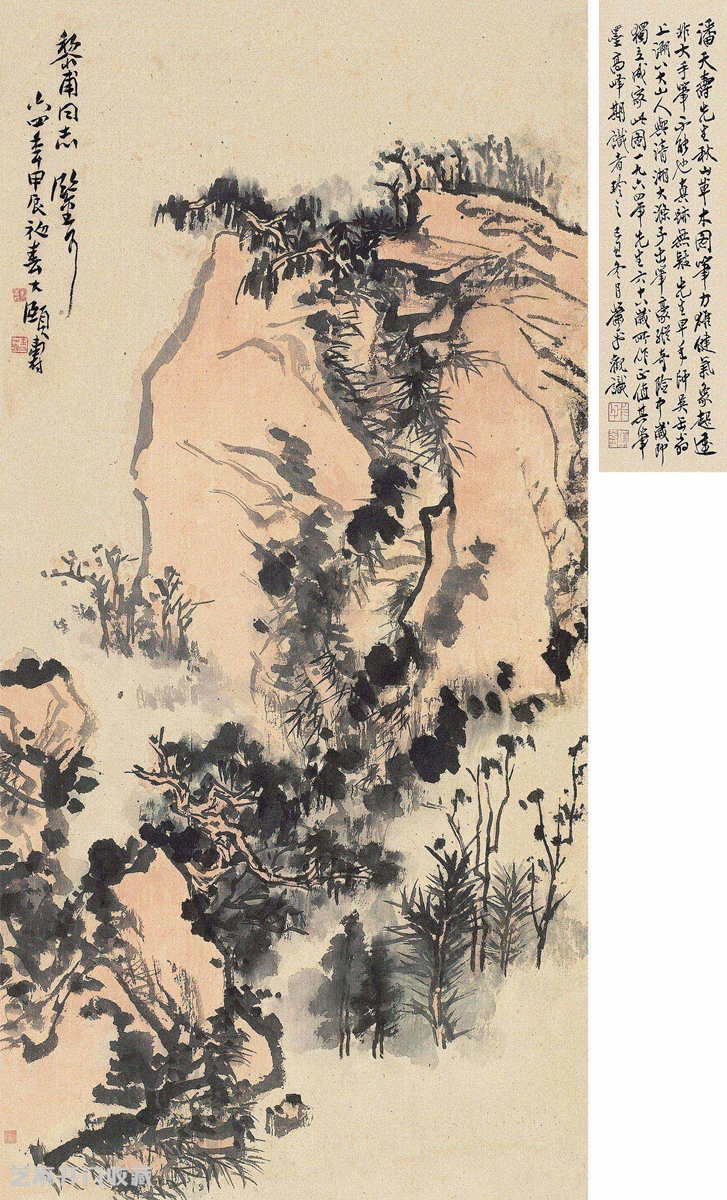 黎甫同志 鑒可
六四年甲辰初春大頤壽
潘天壽先生秋山草木圖筆力雄健氣象超遠
非大手筆不能也真跡無疑先生早年師吳缶翁
上溯八大山人與清湘大滌子出筆豪縱奇險中歲即
獨立成家此圖一九六四年先生六十八歲所作正值其筆
墨高峰期識者珍之己丑冬月蕭平觀識
芝麻开门收藏